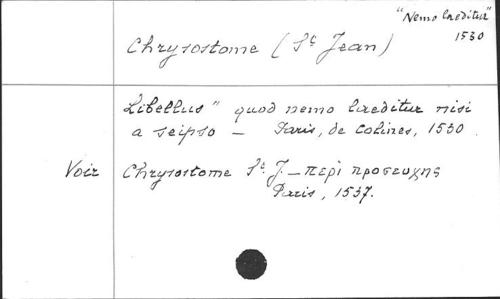 "Nemo laeditur"
1530
Chrysostome (St Jean)
Libellus" quod nemo laeditur nisi
a seipso – Paris, de Colines, 1530.
Voir Chrysostome St J. – περὶ προσευχης
Paris, 1537.